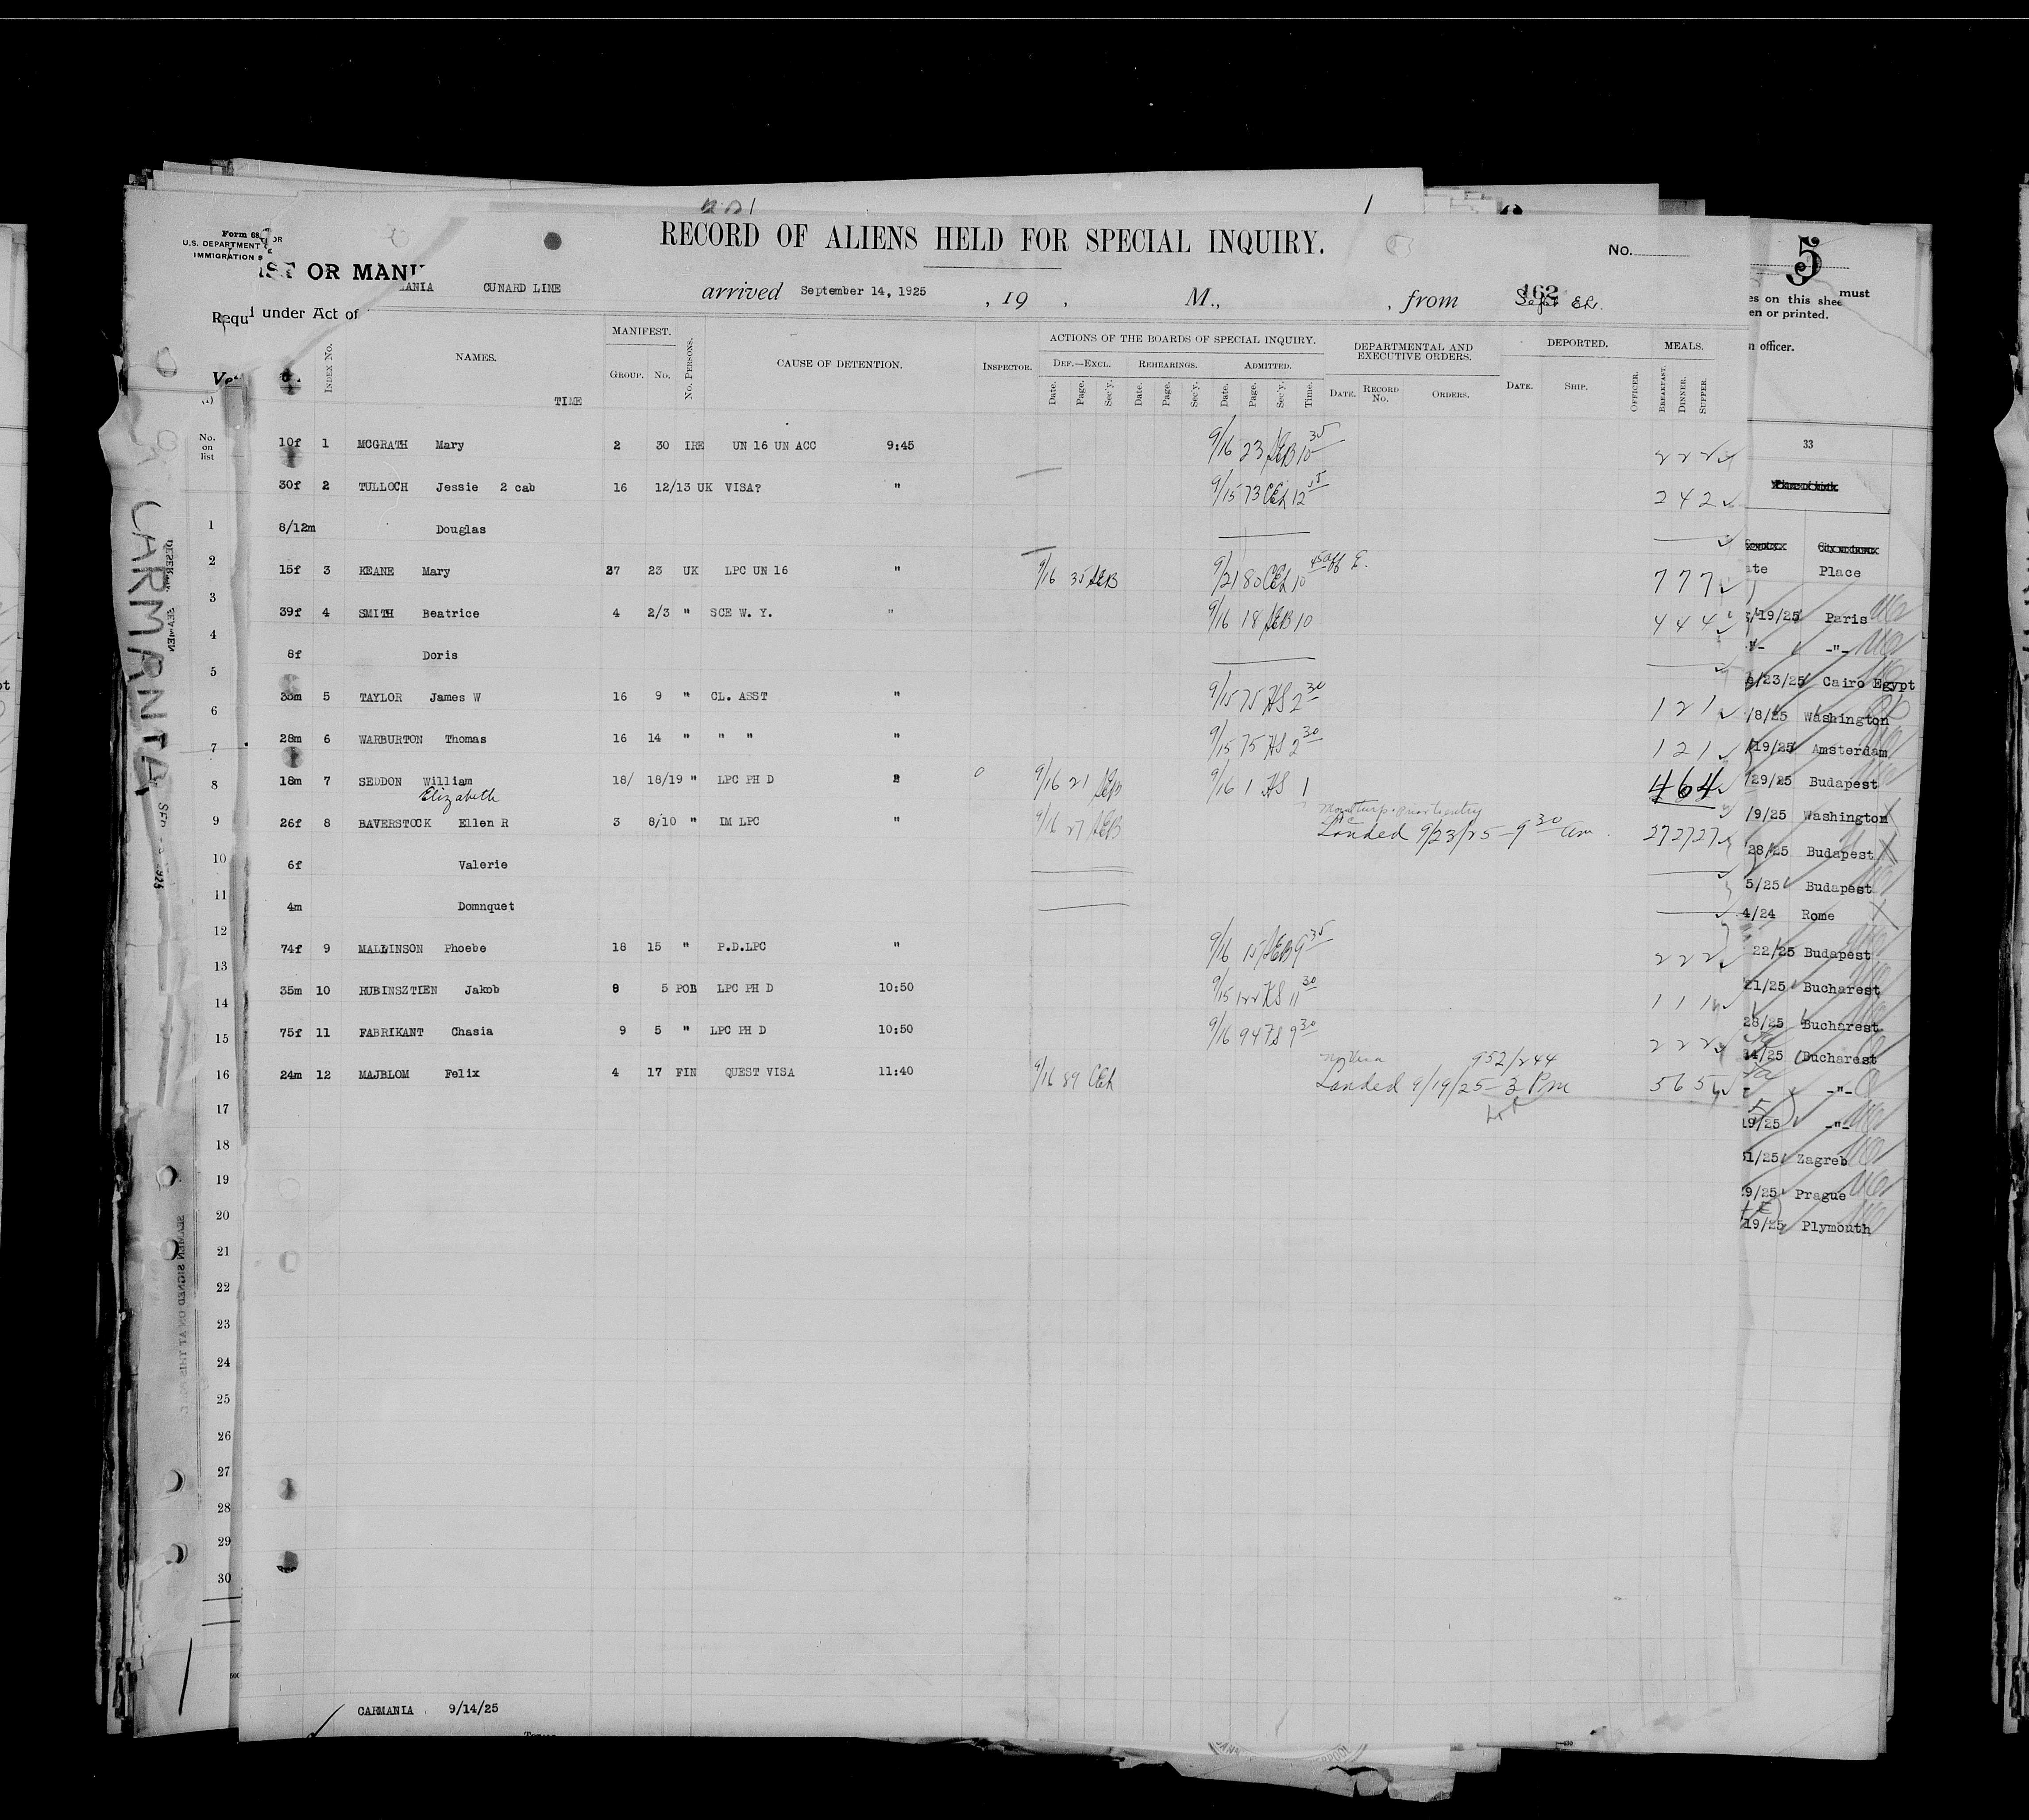 RECORD OF ALIENS HELD FOR SPECIAL INQUIRY.
No.
Form 68
U.S. DEPARTMENT
IMMIGRATION
OR MANI
ANIA CUNARD LINE arrived September 14, 1925 , 19 , M., , from
Requ under Act of
MANIFEST. ACTIONS OF THE BOARDS OF SPECIAL INQUIRY. DEPARTMENTAL AND EXECUTIVE ORDERS. DEPORTED. MEALS.
INDEX NO. NAMES. GROUP. NO. NO. PERSONS. CAUSE OF DETENTION. INSPECTOR. DEF.—EXCL. REHEARINGS. ADMITTED.
Date. Page. Sec'y. Date. Page. Sec'y. Date. Page. Sec'y. Time. DATE. RECORD NO. ORDERS. DATE. SHIP. OFFICER. BREAKFAST. DINNER. SUPPER.
TIME
10f 1 MCGRATH Mary 2 30 IRE UN 16 UN ACC 9:45 9/16 23 AEB 10 35 2 2 2
30f 2 TULLOCH Jessie 2 cab 16 12/13 UK VISA? " 9/15 73 CEh 12 15 2 4 2
8/12m Douglas
15f 3 KEANE Mary 27 23 UK LPC UN 16 " 9/16 35 AEB 9/21 80 CEh 10 45 7 7 7
39f 4 SMITH Beatrice 4 2/3 " SCE W. Y. " 9/16 18 AEB 10 4 4 4
8f Doris
5 TAYLOR James W 16 9 " CL. ASST " 9/15 75 HS 2 30 1 2 1
28m 6 WARBURTON Thomas 16 14 " " " " 9/15 75 HS 2 30 1 2 1
18m 7 SEDDON William 18/ 18/19 " LPC PH D 9/16 21 AEB 9/16 1 HS 1 4 6 4
Elizabeth
26f 8 BAVERSTOCK Ellen R 3 8/10 " IM LPC " 9/16 27 AEB Landed 9/23/25 - 9 30 am. 27 27 27
6f Valerie
4m Domnquet
74f 9 MALLINSON Phoebe 18 15 " P.D.LPC " 9/16 15 AEB 9 35 2 2 2
35m 10 RUBINSZTIEN Jakob 9 5 POL LPC PH D 10:50 9/15 122 KS 11 30 1 1 1
75f 11 FABRIKANT Chasia 9 5 " LPC PH D 10:50 9/16 94 7S 9 30 2 2 2
24m 12 MAJBLOM Felix 4 17 FIN QUEST VISA 11:40 9/16 89 CEh 952/244
Landed 9/19/25 - 3 Pm 5 6 5
CARMANIA 9/14/25
CARMANIA
No. on list
1
2
3
4
5
6
7
8
9
10
11
12
13
14
15
16
17
18
19
20
21
22
23
24
25
26
27
28
29
30
5
es on this sheet must
en or printed.
n officer.
33
ate Place
/19/25 Paris
-"-
/23/25 Cairo Egypt
/8/25 Washington
19/25 Amsterdam
29/25 Budapest
/9/25 Washington
28/25 Budapest
5/25 Budapest
4/24 Rome
22/25 Budapest
21/25 Bucharest
28/25 Bucharest
/25 Bucharest
-"-
19/25 -"-
/25 Zagreb
9/25 Prague
19/25 Plymouth